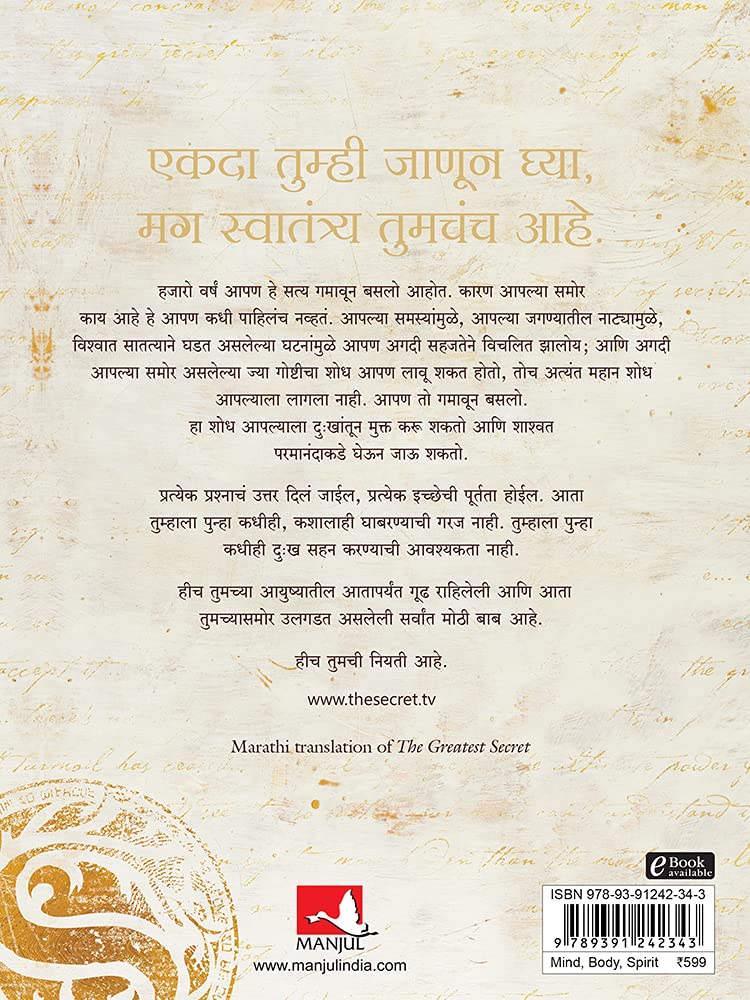 एकदा तुम्ही जाणून घ्या,
मग स्वातंत्र्य तुमचंच आहे.
हजारो वर्षं आपण हे सत्य गमावून बसलो आहोत. कारण आपल्या समोर
काय आहे हे आपण कधी पाहिलंच नव्हतं. आपल्या समस्यांमुळे, आपल्या जगण्यातील नाट्यामुळे,
विश्वात सातत्याने घडत असलेल्या घटनांमुळे आपण अगदी सहजतेने विचलित झालोय; आणि अगदी
आपल्या समोर असलेल्या ज्या गोष्टीचा शोध आपण लावू शकत होतो, तोच अत्यंत महान शोध
आपल्याला लागला नाही. आपण तो गमावून बसलो.
हा शोध आपल्याला दुःखांतून मुक्त करू शकतो आणि शाश्वत
परमानंदाकडे घेऊन जाऊ शकतो.
प्रत्येक प्रश्नाचं उत्तर दिलं जाईल, प्रत्येक इच्छेची पूर्तता होईल. आता
तुम्हाला पुन्हा कधीही, कशालाही घाबरण्याची गरज नाही. तुम्हाला पुन्हा
कधीही दुःख सहन करण्याची आवश्यकता नाही.
हीच तुमच्या आयुष्यातील आतापर्यंत गूढ राहिलेली आणि आता
तुमच्यासमोर उलगडत असलेली सर्वांत मोठी बाब आहे.
हीच तुमची नियती आहे.
www.thesecret.tv
Marathi translation of The Greatest Secret
eBook
available
ISBN 978-93-91242-34-3
9 789391 242343
Mind, Body, Spirit ₹599
MANJUL
www.manjulindia.com